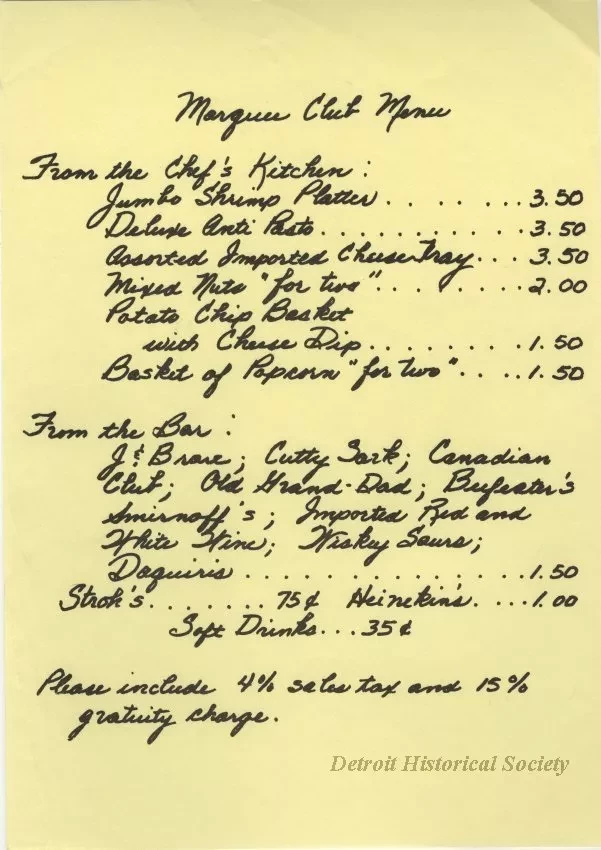 Marquee Club Menu
From the Chef's Kitchen:
Jumbo Shrimp Platter........3.50
Deluxe Anti Pasto...........3.50
Assorted Imported Cheese Tray...3.50
Mixed Nuts "for two".........2.00
Potato Chip Basket
with Cheese Dip........1.50
Basket of Popcorn "for two"....1.50
From the Bar:
J & B rare; Cutty Sark; Canadian
Club; Old Grand-Dad; Beefeater's
Smirnoff's; Imported Red and
White Wine; Wiskey Sours;
Daquiris..............1.50
Stroh's.......75¢ Heinekin's....1.00
Soft Drinks...35¢
Please include 4% sales tax and 15%
gratuity charge.
Detroit Historical Society